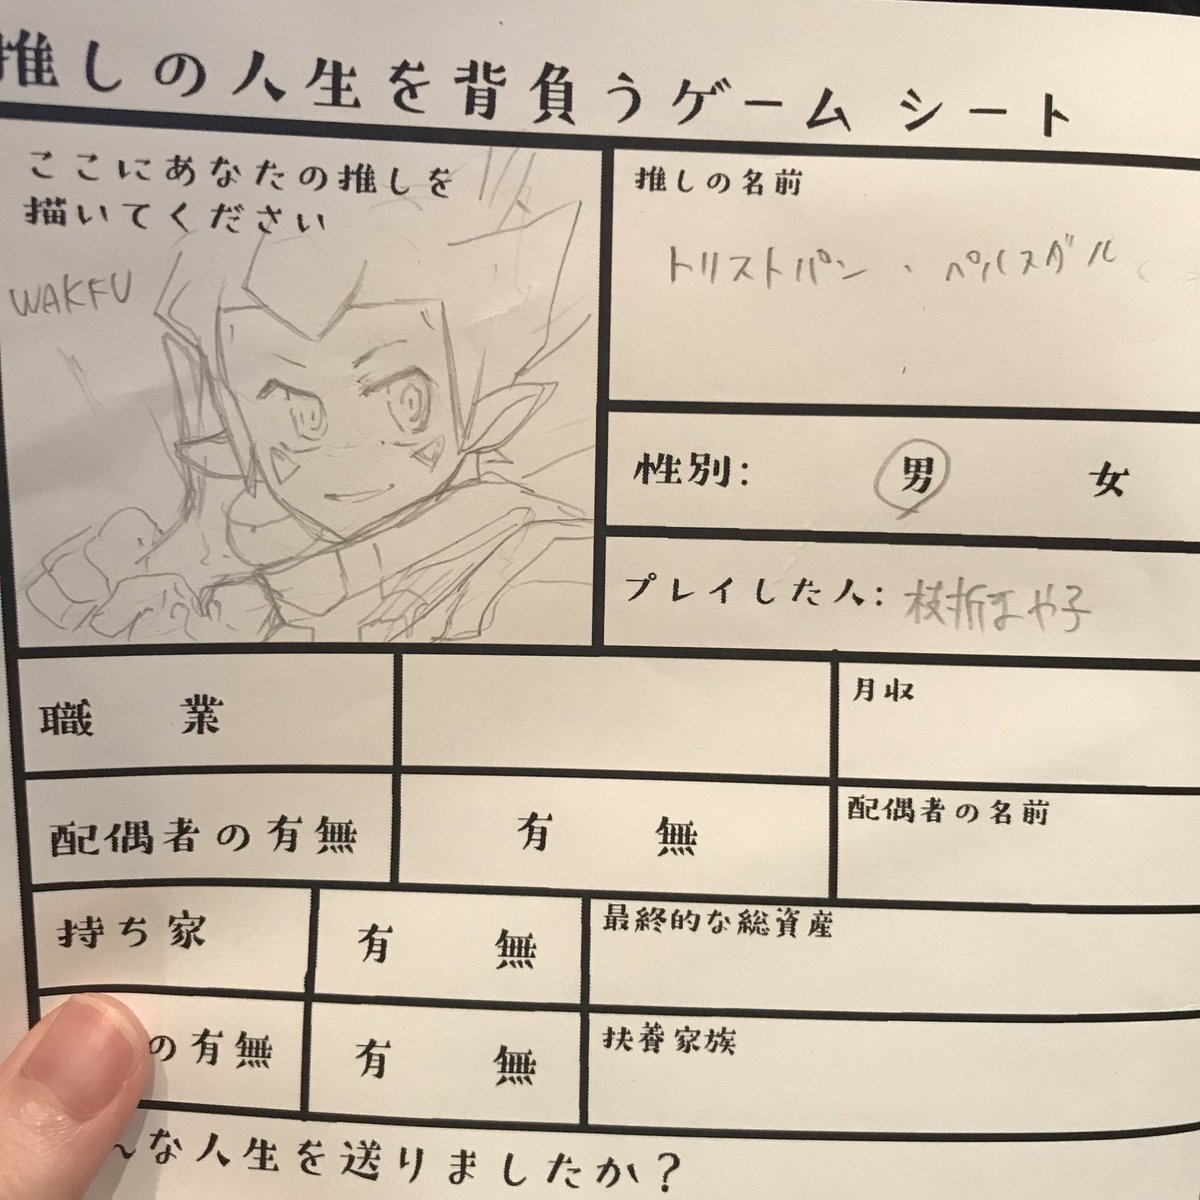 推しの人生を背負うゲーム シート
ここにあなたの推しを
描いてください
WAKFU
推しの名前
トリストパン・ペルスダル
性別: 男 女
プレイした人: 枝折まや子
職 業
月収
配偶者の有無 有 無
配偶者の名前
持ち家 有 無
最終的な総資産
の有無 有 無
扶養家族
な人生を送りましたか?